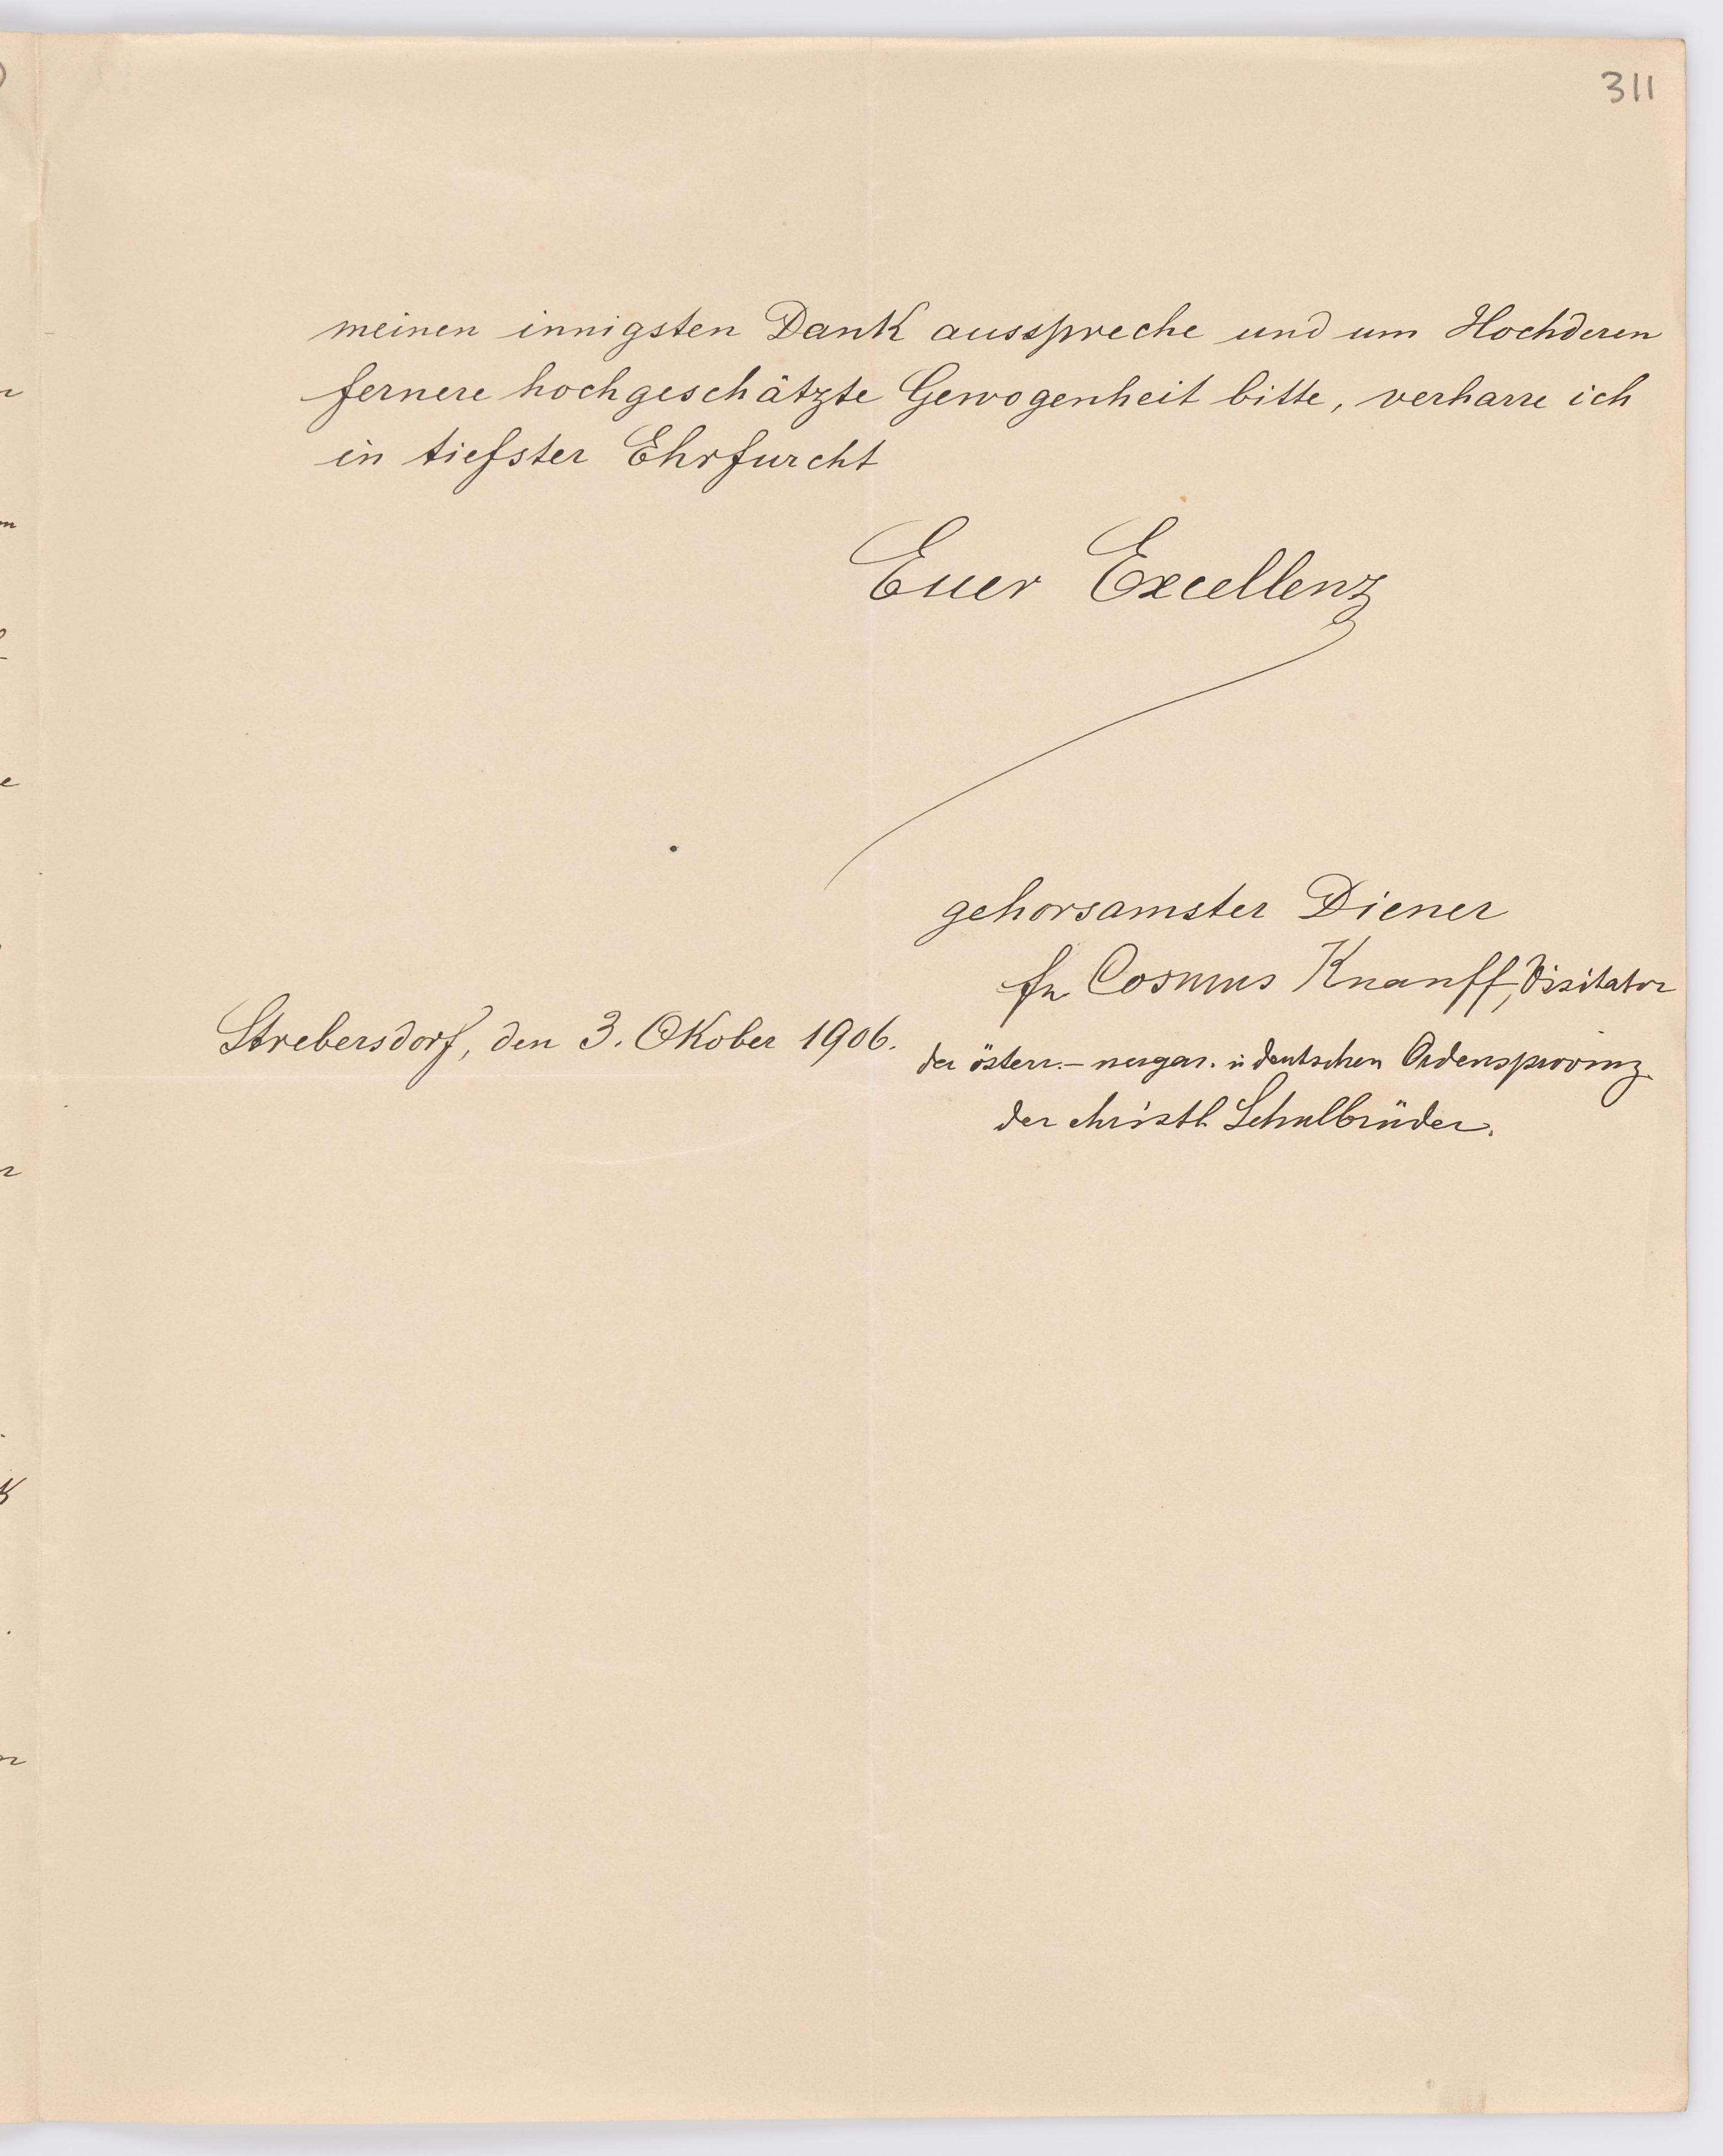 311
meinen innigsten Dank ausspreche und um Hochderen
fernere hochgeschätzte Gewogenheit bitte, verharre ich
in tiefster Ehrfurcht
Euer Excellenz
gehorsamster Diener
fr Cosmus Knauff, Visitator
Strebersdorf, den 3. Okober 1906.
der österr.- ungar. u deutschen Ordensprovinz
der christl. Schulbrüder.